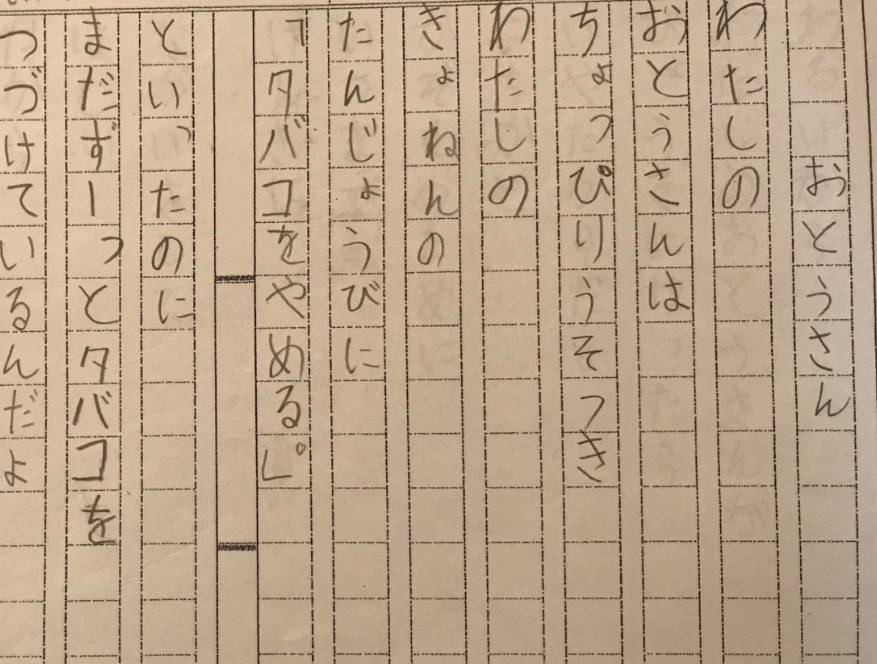 おとうさん
わたしの
おとうさんは
ちょっぴりうそつき
わたしの
きょねんの
たんじょうびに
「タバコをやめる。」
といったのに
まだずーっとタバコを
つづけているんだよ